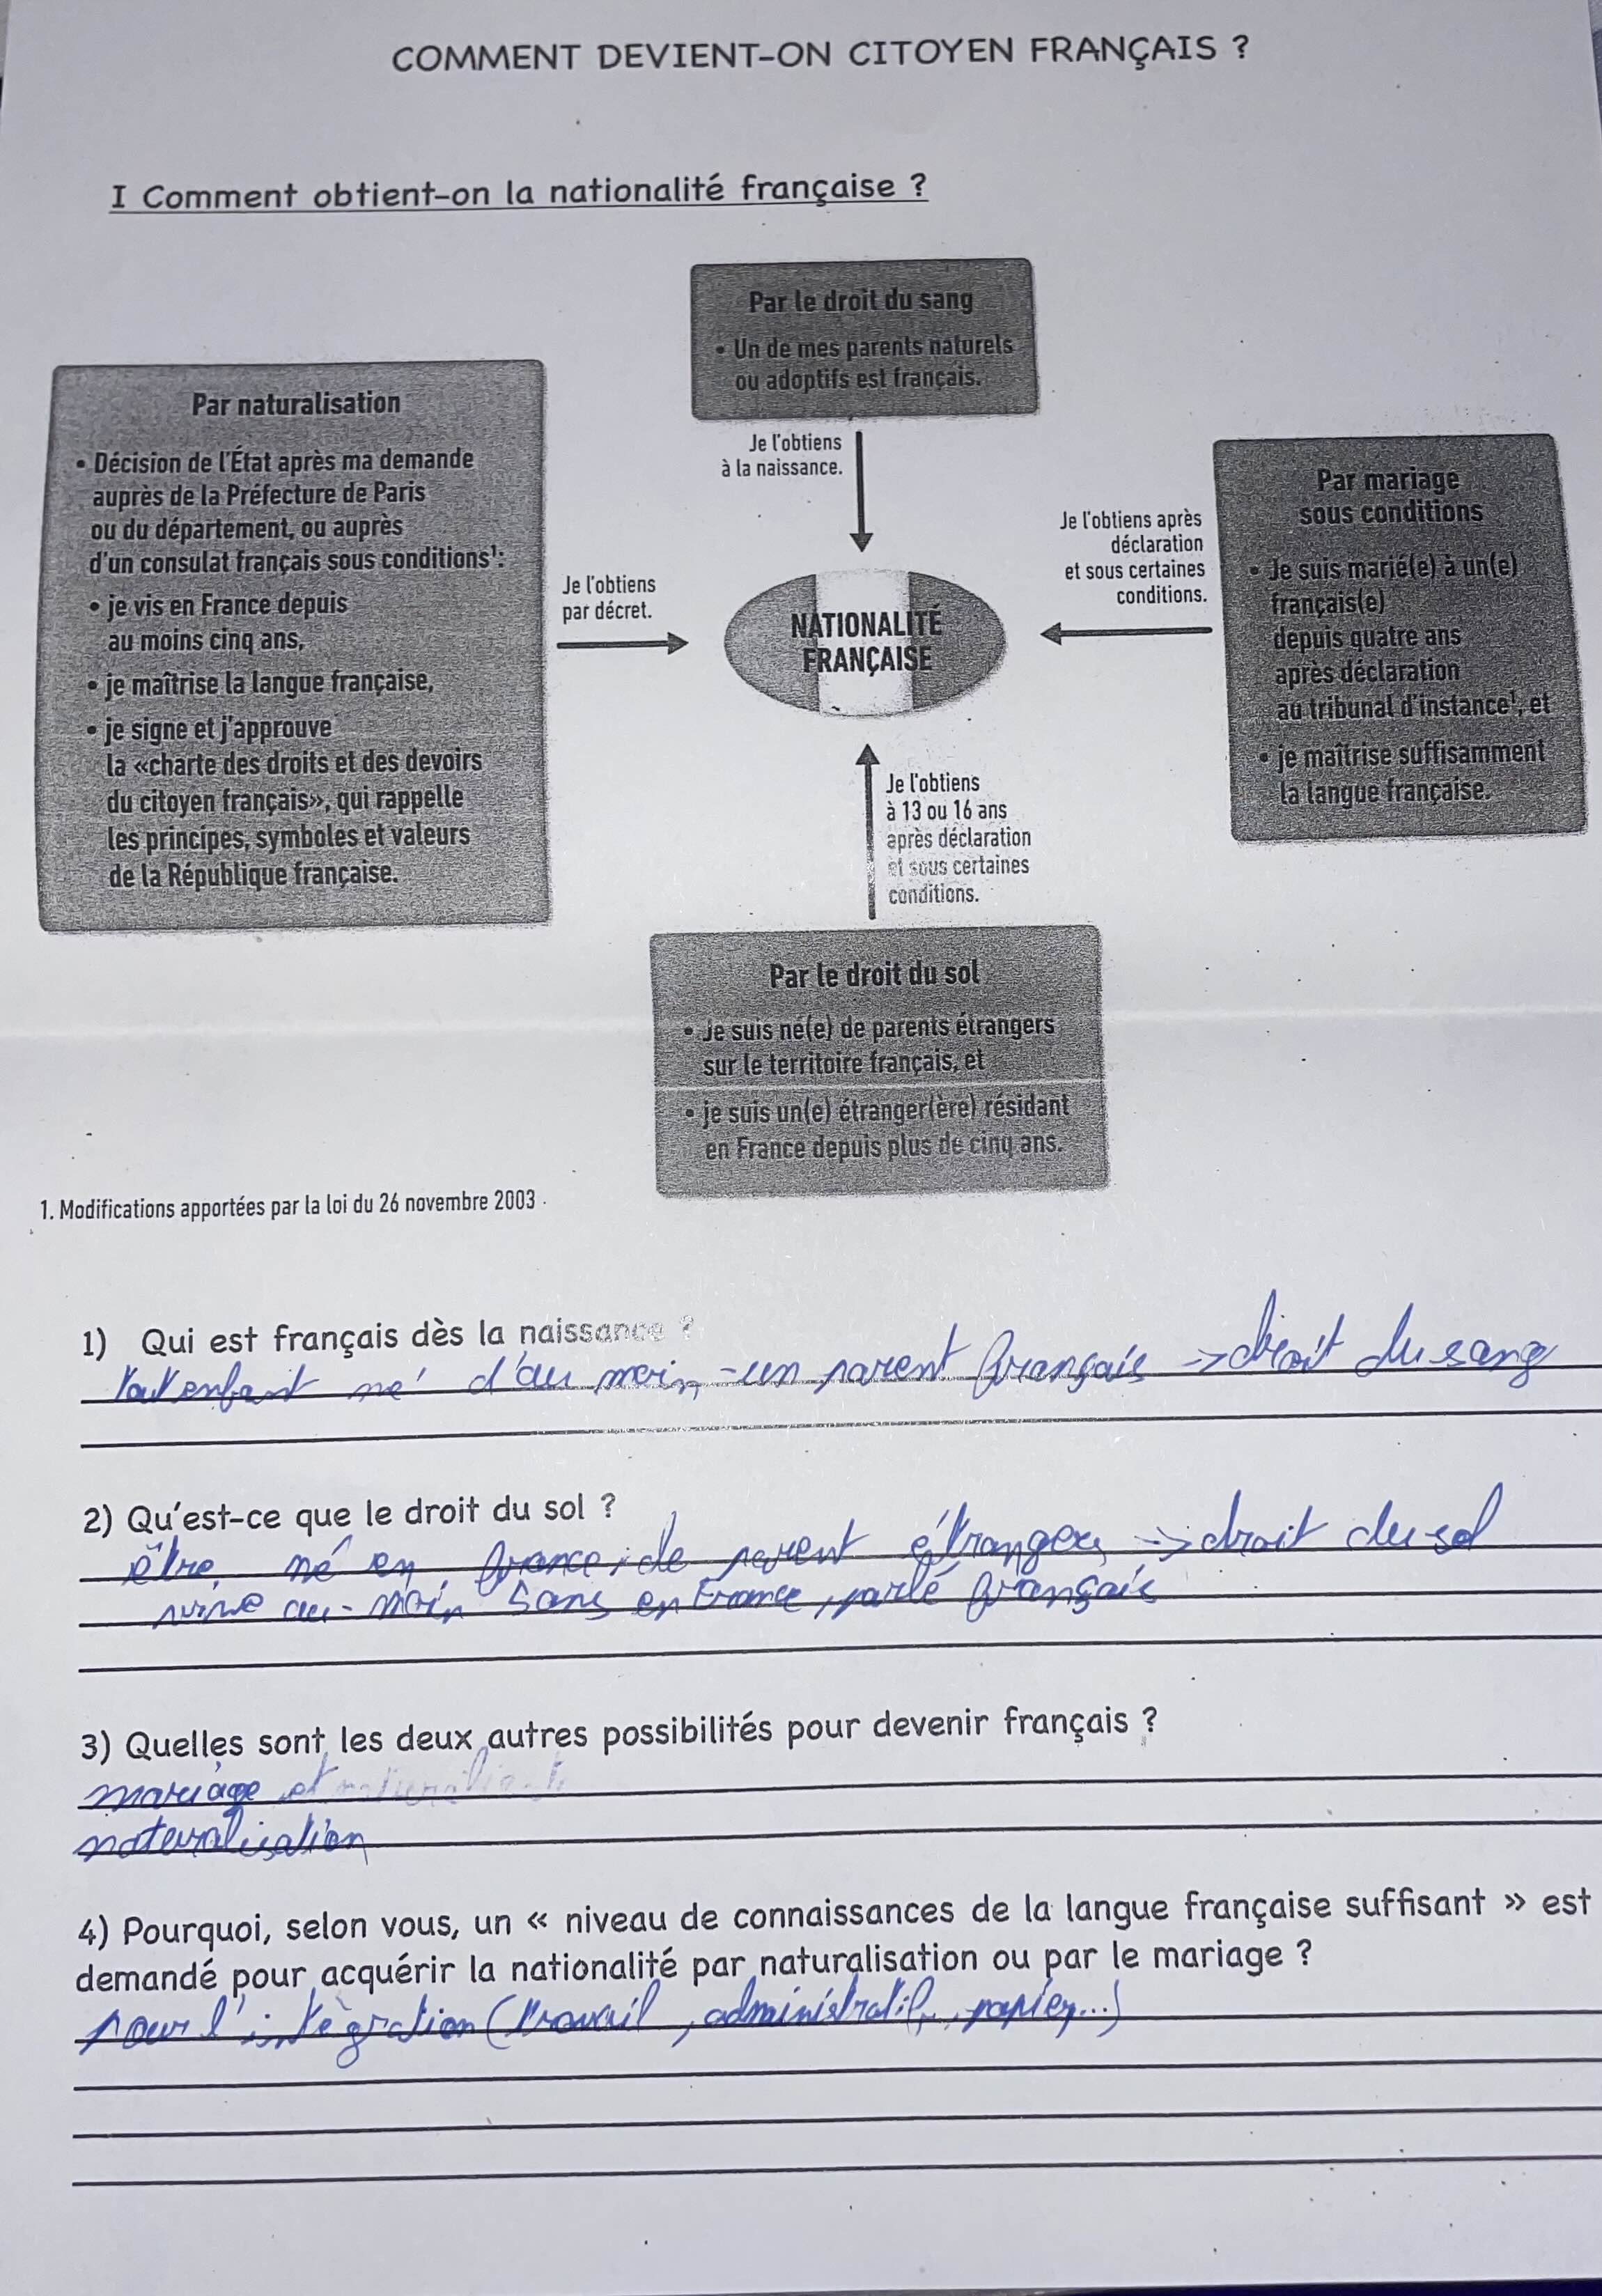 COMMENT DEVIENT-ON CITOYEN FRANÇAIS ?
I Comment obtient-on la nationalité française ?
Par le droit du sang
• Un de mes parents naturels
ou adoptifs est français.
Je l'obtiens
à la naissance.
Par naturalisation
• Décision de l'État après ma demande
auprès de la Préfecture de Paris
ou du département, ou auprès
d'un consulat français sous conditions¹:
• je vis en France depuis
au moins cinq ans,
• je maîtrise la langue française,
• je signe et j'approuve
la «charte des droits et des devoirs
du citoyen français», qui rappelle
les principes, symboles et valeurs
de la République française.
Je l'obtiens
par décret.
NATIONALITÉ
FRANÇAISE
Je l'obtiens après
déclaration
et sous certaines
conditions.
Par mariage
sous conditions
• Je suis marié(e) à un(e)
français(e)
depuis quatre ans
après déclaration
au tribunal d'instance¹, et
• je maîtrise suffisamment
la langue française.
Je l'obtiens
à 13 ou 16 ans
après déclaration
et sous certaines
conditions.
Par le droit du sol
• Je suis né(e) de parents étrangers
sur le territoire français, et
• je suis un(e) étranger(ère) résidant
en France depuis plus de cinq ans.
1. Modifications apportées par la loi du 26 novembre 2003.
1) Qui est français dès la naissance ?
Tout enfant né d'au moin-un parent français -> droit du sang
2) Qu'est-ce que le droit du sol ?
être né en france, de parent étrangers -> droit du sol
vivre au-moin 5ans en France, parlé français
3) Quelles sont les deux autres possibilités pour devenir français ?
mariage et
naturalisation
4) Pourquoi, selon vous, un « niveau de connaissances de la langue française suffisant » est
demandé pour acquérir la nationalité par naturalisation ou par le mariage ?
pour l'intégration (travail, administratif, papier...)